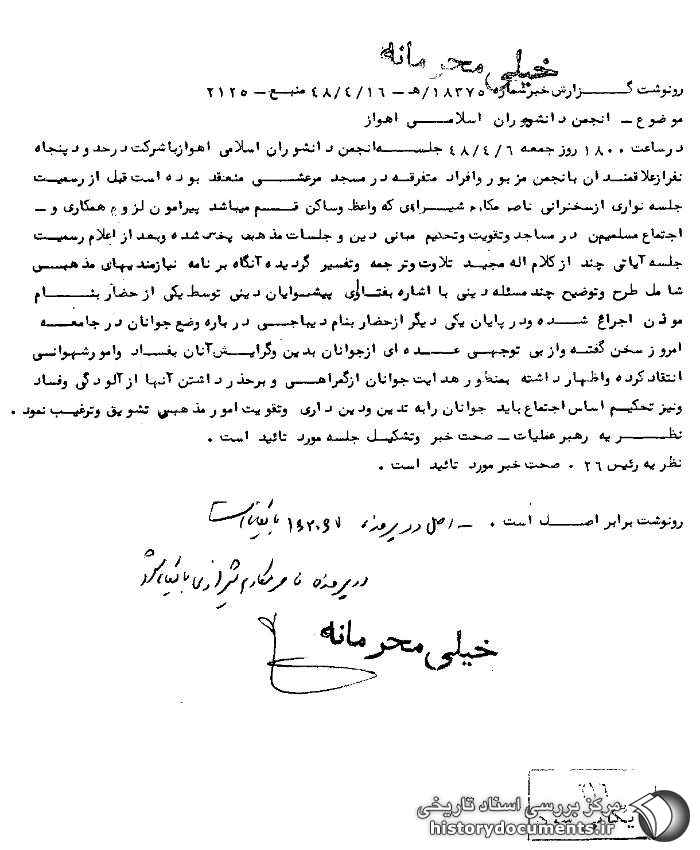 خیلی محرمانه
رونوشت گزارش خبر شماره ۱۸۳۷۵/هـ – ۴۸/۴/۱۶ منبع – ۲۱۲۵
موضوع – انجمن دانشوران اسلامی اهواز
در ساعت ۱۸۰۰ روز جمعه ۴۸/۴/۶ جلسه انجمن دانشوران اسلامی اهواز با شرکت در حدود پنجاه
نفر از علاقمندان با نجمن مزبور و افراد متفرقه در مسجد مرعشی منعقد بوده است قبل از رسمیت
جلسه نواری از سخنرانی ناصر مکارم شیرازی که واعظ و ساکن قم میباشد پیرامون لزوم همکاری و –
اجتماع مسلمین در مساجد و تقویت و تحکیم مبانی دین و جلسات مذهبی پخش شده و بعد از اعلام رسمیت
جلسه آیاتی چند از کلام اله مجید تلاوت و ترجمه و تفسیر گردیده آنگاه برنامه نیازمندیهای مذهبی
شامل طرح و توضیح چند مسئله دینی با اشاره بفتاوی پیشوایان دینی توسط یکی از حضار بنام
موذن اجراء شده و در پایان یکی دیگر از حضار بنام دیباجی در باره وضع جوانان در جامعه
امروز سخن گفته و از بی توجهی عده ای از جوانان بدین و گرایش آنان بفساد و امور شهوانی
انتقاد کرده و اظهار داشته بمنظور هدایت جوانان از گمراهی و برحذر داشتن آنها از آلودگی و فساد
و نیز تحکیم اساس اجتماع باید جوانان را به تدین و دین داری و تقویت امور مذهبی تشویق و ترغیب نمود .
نظریه رهبر عملیات – صحت خبر و تشکیل جلسه مورد تائید است .
نظریه رئیس ۲۶ . صحت خبر مورد تائید است .
رونوشت برابر اصل است . – اصل در پرونده بایگانی است
در پرونده ناصر مکارم شیرازی بایگانی شد
خیلی محرمانه
مرکز بررسی اسناد تاریخی
historydocuments.ir